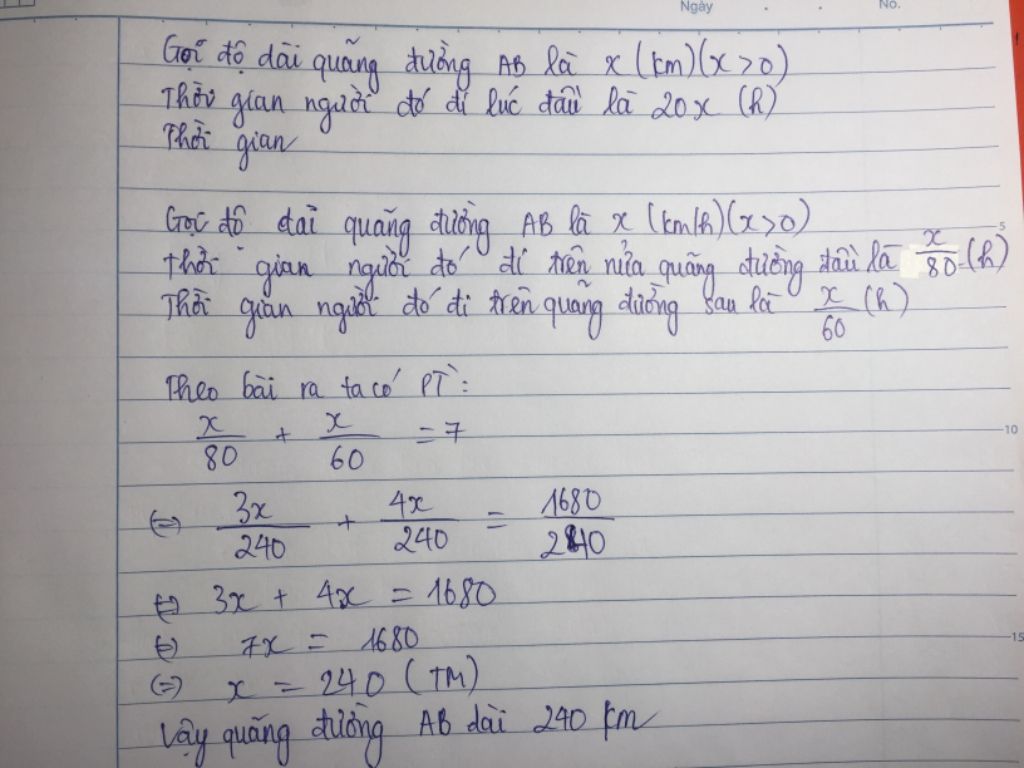 Ngày . . No.
Gọi độ dài quãng đường AB là x (km)(x>0)
Thời gian người đó đi lúc đầu là 20x (h)
Thời gian
Gọi độ dài quãng đường AB là x (km/h)(x>0)
5
Thời gian người đó đi trên nửa quãng đường đầu là x/80 (h)
Thời gian người đó đi trên quãng đường sau là x/60 (h)
Theo bài ra ta có PT:
x/80 + x/60 = 7
10
(=) 3x/240 + 4x/240 = 1680/240
(=) 3x + 4x = 1680
(=) 7x = 1680
15
(=) x = 240 (TM)
Vậy quãng đường AB dài 240 km